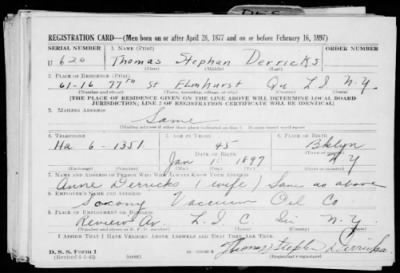 REGISTRATION CARD—(Men born on or after April 28, 1877 and on or before February 16, 1897)
SERIAL NUMBER 1. NAME (Print) ORDER NUMBER
U 620 Thomas Stephan Derricks
(First) (Middle) (Last)
2. PLACE OF RESIDENCE (Print)
61-16 77th St Elmhurst Qu L I N.Y.
(Number and street) (Town, township, village, or city) (County) (State)
[THE PLACE OF RESIDENCE GIVEN ON THE LINE ABOVE WILL DETERMINE LOCAL BOARD
JURISDICTION; LINE 2 OF REGISTRATION CERTIFICATE WILL BE IDENTICAL]
3. MAILING ADDRESS
Same
(Mailing address if other than place indicated on line 2. If same insert word same)
4. TELEPHONE 5. AGE IN YEARS 6. PLACE OF BIRTH
Ha 6-1351 45 Bklyn
DATE OF BIRTH
Jan 1 1897 N Y
7. NAME AND ADDRESS OF PERSON WHO WILL ALWAYS KNOW YOUR ADDRESS
Anne Derricks (wife) Same as above
8. EMPLOYER'S NAME AND ADDRESS
Socony Vaccum Oil Co
9. PLACE OF EMPLOYMENT OR BUSINESS
Review Av L I C N.Y.
I AFFIRM THAT I HAVE VERIFIED ABOVE ANSWERS AND THAT THEY ARE TRUE.
D. S. S. Form 1
(Revised 4-1-42) (over) Thomas Stephan Derricks